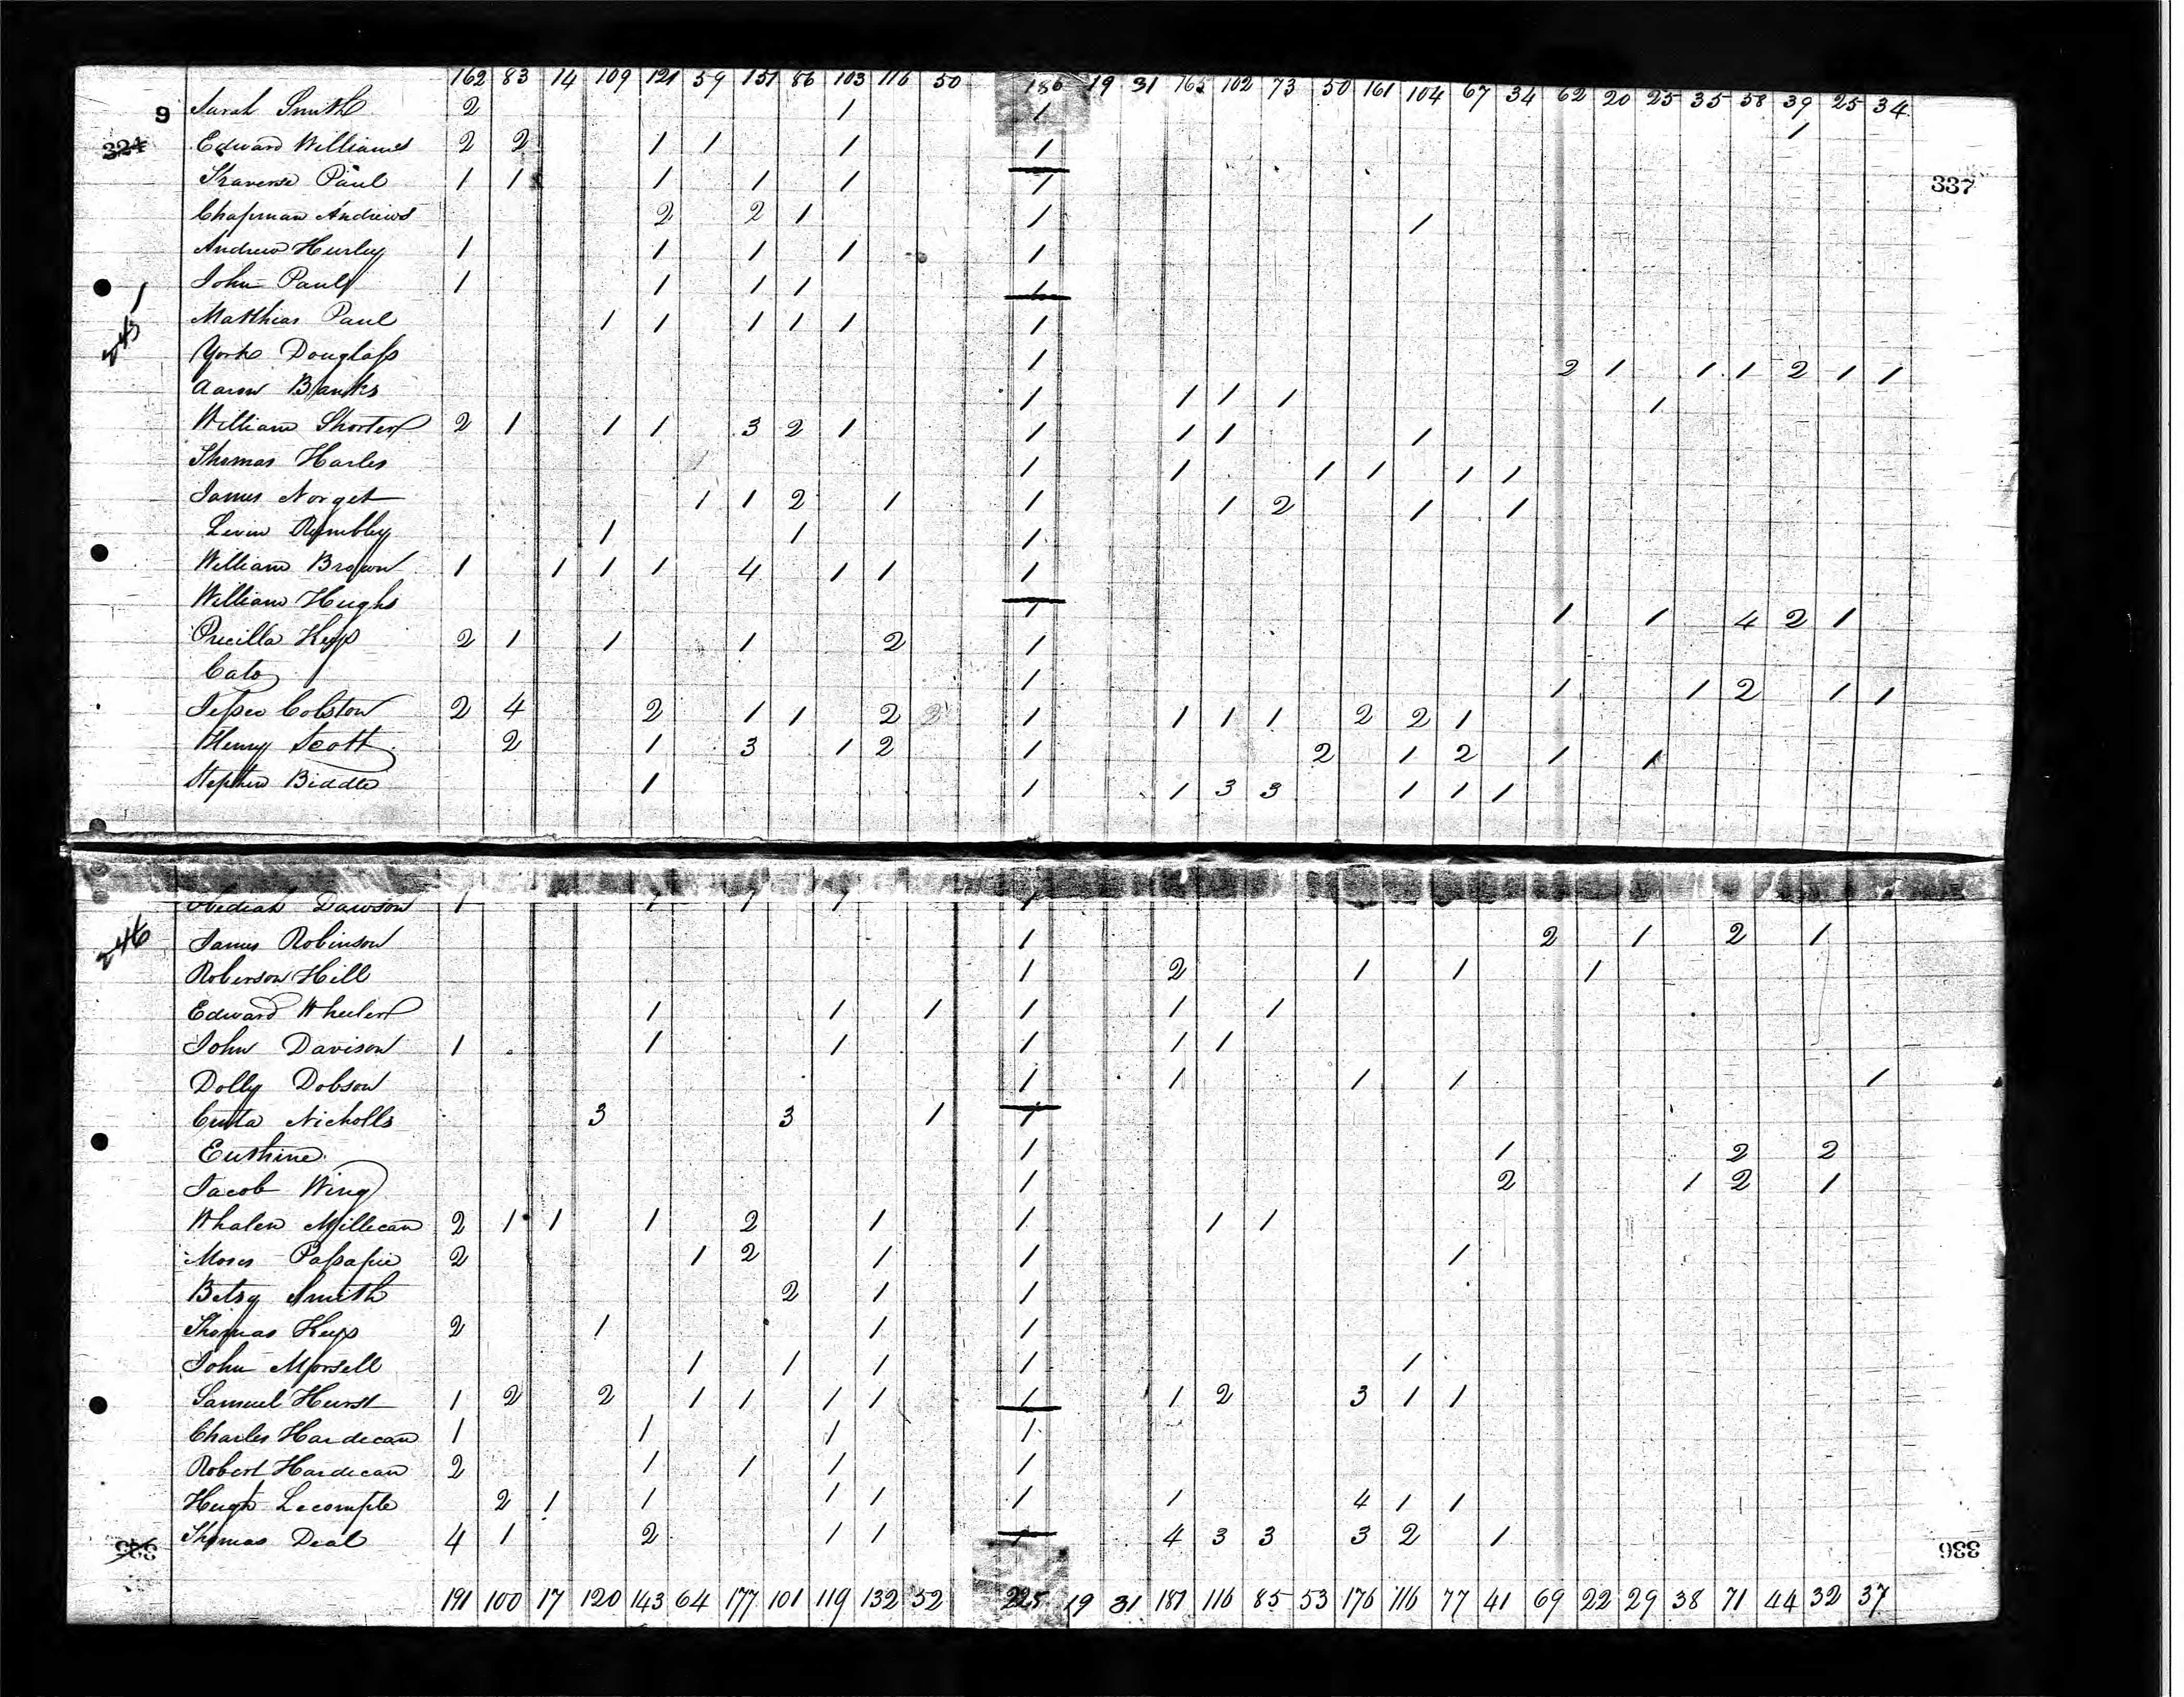 162 83 14 109 121 59 151 86 103 116 50 186 19 31 165 102 73 50 161 104 67 34 62 20 25 35 58 39 25 34
9 Sarah Smith 2 1 1 1
324 Edward Williams 2 2 1 1 1 1
Traverse Paul 1 1 1 1 1 1 337
Chapman Andrews 2 2 1 1 1
Andrew Hurley 1 1 1 1 1
John Paul 1 1 1 1 1
245 Matthias Paul 1 1 1 1 1 1
York Douglass 1 2 1 1 1 2 1 1
Aaron Banks 1 1 1 1 1
William Shorter 2 1 1 1 3 2 1 1 1 1 1
Thomas Harles 1 1 1 1 1 1
James Norget 1 1 2 1 1 1 2 1 1
Levin 1 1 1
William Brown 1 1 1 1 4 1 1 1
William Hughs 1 1 1 4 2 1
Precilla Keys 2 1 1 1 2 1
Cato 1 1 1 2 1 1
Jessee Colston 2 4 2 1 1 2 2 1 1 1 1 2 2 1
Henry Scott 2 1 3 1 2 1 2 1 2 1 1
Stephen Biddle 1 1 1 3 3 1 1 1
Dawson 1 1 1 1 1
246 James Robinson 1 2 1 2 1
Roberson Hill 1 2 1 1 1
Edward Wheeler 1 1 1 1 1 1
John Davison 1 1 1 1 1 1
Dolly Dobson 1 1 1 1 1
Nicholls 3 3 1 1
1 1 2 2
Jacob Wing 1 2 1 2 1
Whalen Millican 2 1 1 1 2 1 1 1 1
Moses 2 1 2 1 1 1
Betsy Smith 2 1 1
Thomas Keys 2 1 1 1
John Morsell 1 1 1 1 1
Samuel Hurst 1 2 2 1 1 1 1 1 1 2 3 1 1
Charles Hardican 1 1 1 1
Robert Hardican 2 1 1 1 1
Hugh Lecompte 2 1 1 1 1 1 1 4 1 1
Thomas Deal 4 1 2 1 1 1 4 3 3 3 2 1
336
191 100 17 120 143 64 177 101 119 132 52 225 19 31 187 116 85 53 176 116 77 41 69 22 29 38 71 44 32 37